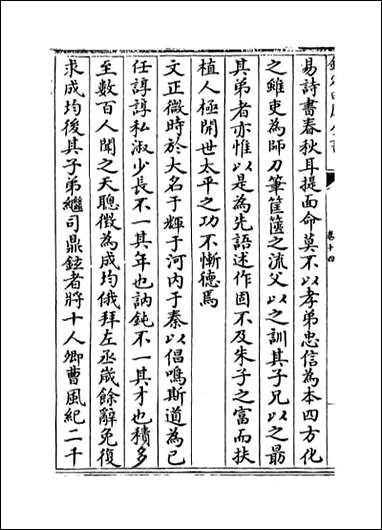 欽定四庫全書
卷十四
易詩書春秋耳提面命莫不以孝弟忠信為本四方化
之雖吏為師刀筆筐篋之流父以之訓其子兄以之勗
其弟者亦惟以是為先語述作固不及朱子之富而扶
植人極開世太平之功不慚德焉
文正微時於大名于輝于河內于秦以倡鳴斯道為己
任諄諄私淑少長不一其年也訥鈍不一其才也積多
至數百人聞之天聰徵為成均俄拜左丞歲餘辭免復
求成均後其子弟繼司鼎鉉者將十人卿曹風紀二千